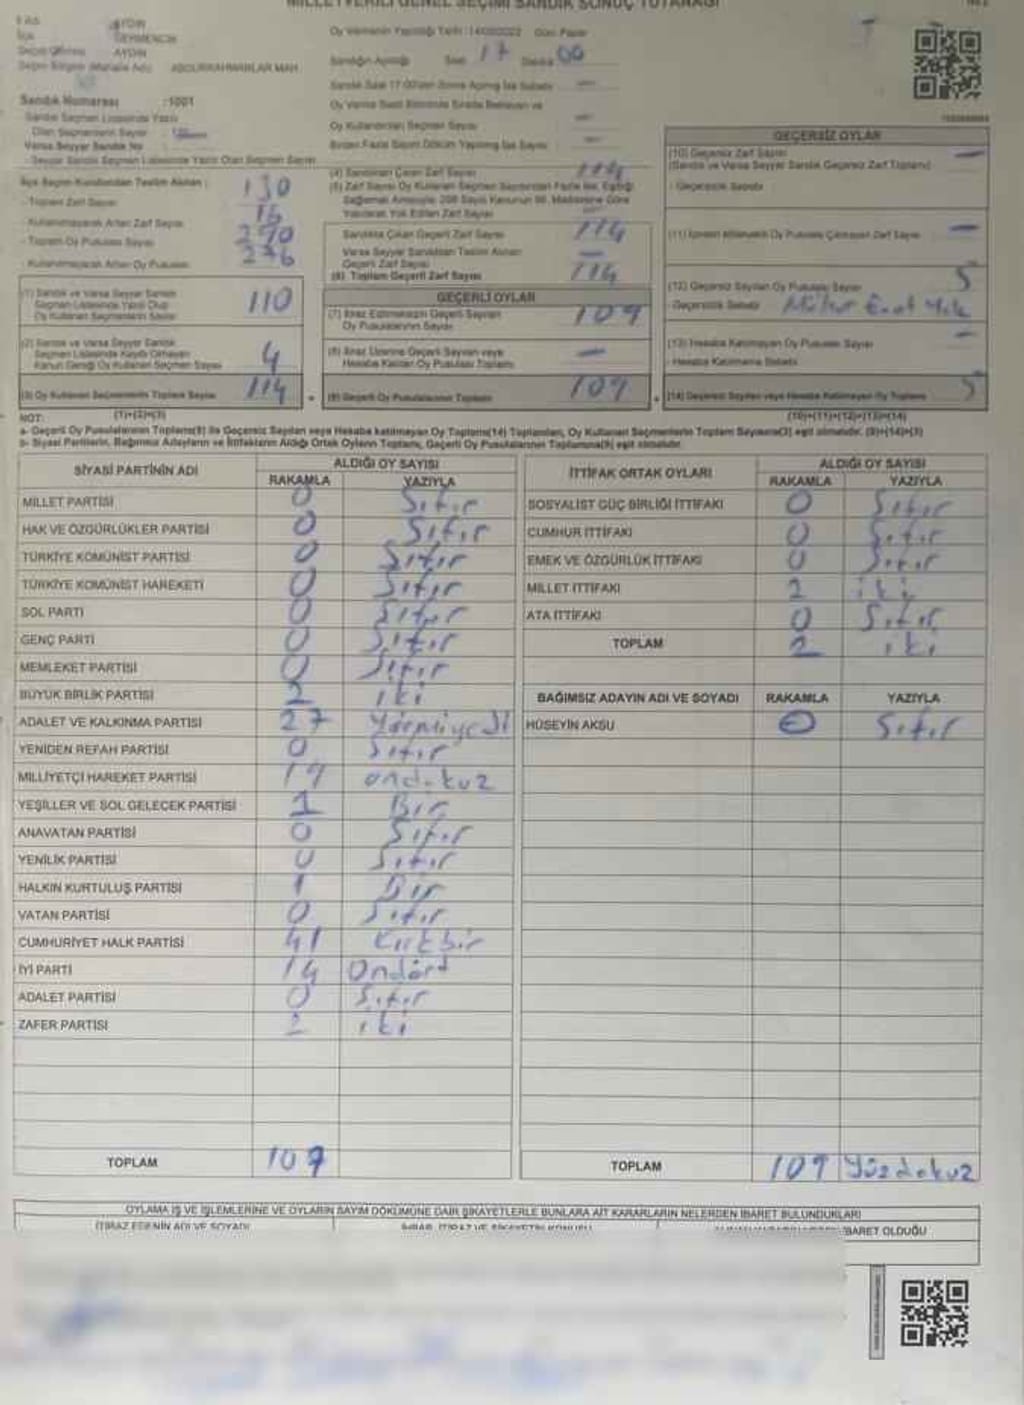 MİLLETVEKİLİ GENEL SEÇİMİ SANDIK SONUÇ TUTANAĞI
AYDIN
GERMENCİK
AYDIN
ABDURRAHMANLAR MAH.
Oy Vermenin Yapıldığı Tarih
Sandığın Açıldığı Saat 17 Dakika 00
Sandık Numarası :1001
130
16
270
276
(1) Sandık ve Varsa Seyyar Sandık
Seçmen Listesinde Yazılı Olup
Oy Kullanan Seçmenlerin Sayısı 110
(2) Sandık ve Varsa Seyyar Sandık
Seçmen Listesinde Kaydı Olmayan
Kanun Gereği Oy Kullanan Seçmen Sayısı 4
(3) Oy Kullanan Seçmenlerin Toplam Sayısı 114
(1)+(2)=(3)
(4) Sandıktan Çıkan Zarf Sayısı 114
Sandıkta Çıkan Geçerli Zarf Sayısı 114
Varsa Seyyar Sandıktan Teslim Alınan
Geçerli Zarf Sayısı —
(6) Toplam Geçerli Zarf Sayısı 114
GEÇERLİ OYLAR
(7) İtiraz Edilmeksizin Geçerli Sayılan
Oy Pusulalarının Sayısı 109
(8) İtiraz Üzerine Geçerli Sayılan veya
Hesaba Katılan Oy Pusulası Toplamı —
(9) Geçerli Oy Pusulalarının Toplamı 109
GEÇERSİZ OYLAR
(10) Geçersiz Zarf Sayısı —
(Sandık ve Varsa Seyyar Sandık Geçersiz Zarf Toplamı)
- Geçersizlik Sebebi
(12) Geçersiz Sayılan Oy Pusulası Sayısı 5
- Geçersizlik Sebebi Mühür Evet Yok
(13) Hesaba Katılmayan Oy Pusulası Sayısı —
- Hesaba Katılmama Sebebi
(14) Geçersiz Sayılan veya Hesaba Katılmayan Oy Toplamı 5
(10)+(11)+(12)+(13)=(14)
NOT:
a- Geçerli Oy Pusulalarının Toplamı(9) ile Geçersiz Sayılan veya Hesaba katılmayan Oy Toplamı(14) Toplamları, Oy Kullanan Seçmenlerin Toplam Sayısına(3) eşit olmalıdır. (9)+(14)=(3)
b- Siyasi Partilerin, Bağımsız Adayların ve İttifakların Aldığı Ortak Oyların Toplamı, Geçerli Oy Pusulalarının Toplamına(9) eşit olmalıdır.
SİYASİ PARTİNİN ADI ALDIĞI OY SAYISI
RAKAMLA YAZIYLA
MİLLET PARTİSİ 0 Sıfır
HAK VE ÖZGÜRLÜKLER PARTİSİ 0 Sıfır
TÜRKİYE KOMÜNİST PARTİSİ 0 Sıfır
TÜRKİYE KOMÜNİST HAREKETİ 0 Sıfır
SOL PARTİ 0 Sıfır
GENÇ PARTİ 0 Sıfır
MEMLEKET PARTİSİ 0 Sıfır
BÜYÜK BİRLİK PARTİSİ 2 iki
ADALET VE KALKINMA PARTİSİ 27 Yirmiyedi
YENİDEN REFAH PARTİSİ 0 Sıfır
MİLLİYETÇİ HAREKET PARTİSİ 19 ondokuz
YEŞİLLER VE SOL GELECEK PARTİSİ 1 Bir
ANAVATAN PARTİSİ 0 Sıfır
YENİLİK PARTİSİ 0 Sıfır
HALKIN KURTULUŞ PARTİSİ 1 Bir
VATAN PARTİSİ 0 Sıfır
CUMHURİYET HALK PARTİSİ 41 Kırkbir
İYİ PARTİ 14 Ondört
ADALET PARTİSİ 0 Sıfır
ZAFER PARTİSİ 2 iki
TOPLAM 107
İTTİFAK ORTAK OYLARI ALDIĞI OY SAYISI
RAKAMLA YAZIYLA
SOSYALİST GÜÇ BİRLİĞİ İTTİFAKI 0 Sıfır
CUMHUR İTTİFAKI 0 Sıfır
EMEK VE ÖZGÜRLÜK İTTİFAKI 0 Sıfır
MİLLET İTTİFAKI 2 iki
ATA İTTİFAKI 0 Sıfır
TOPLAM 2 iki
BAĞIMSIZ ADAYIN ADI VE SOYADI RAKAMLA YAZIYLA
HÜSEYİN AKSU 0 Sıfır
TOPLAM 109 Yüzdokuz
OYLAMA İŞ VE İŞLEMLERİNE VE OYLARIN SAYIM DÖKÜMÜNE DAİR ŞİKAYETLERLE BUNLARA AİT KARARLARIN NELERDEN İBARET BULUNDUKLARI
İTİRAZ EDENİN ADI VE SOYADI İHBAR, İTİRAZ VE ŞİKAYETİN KONUSU İBARET OLDUĞU